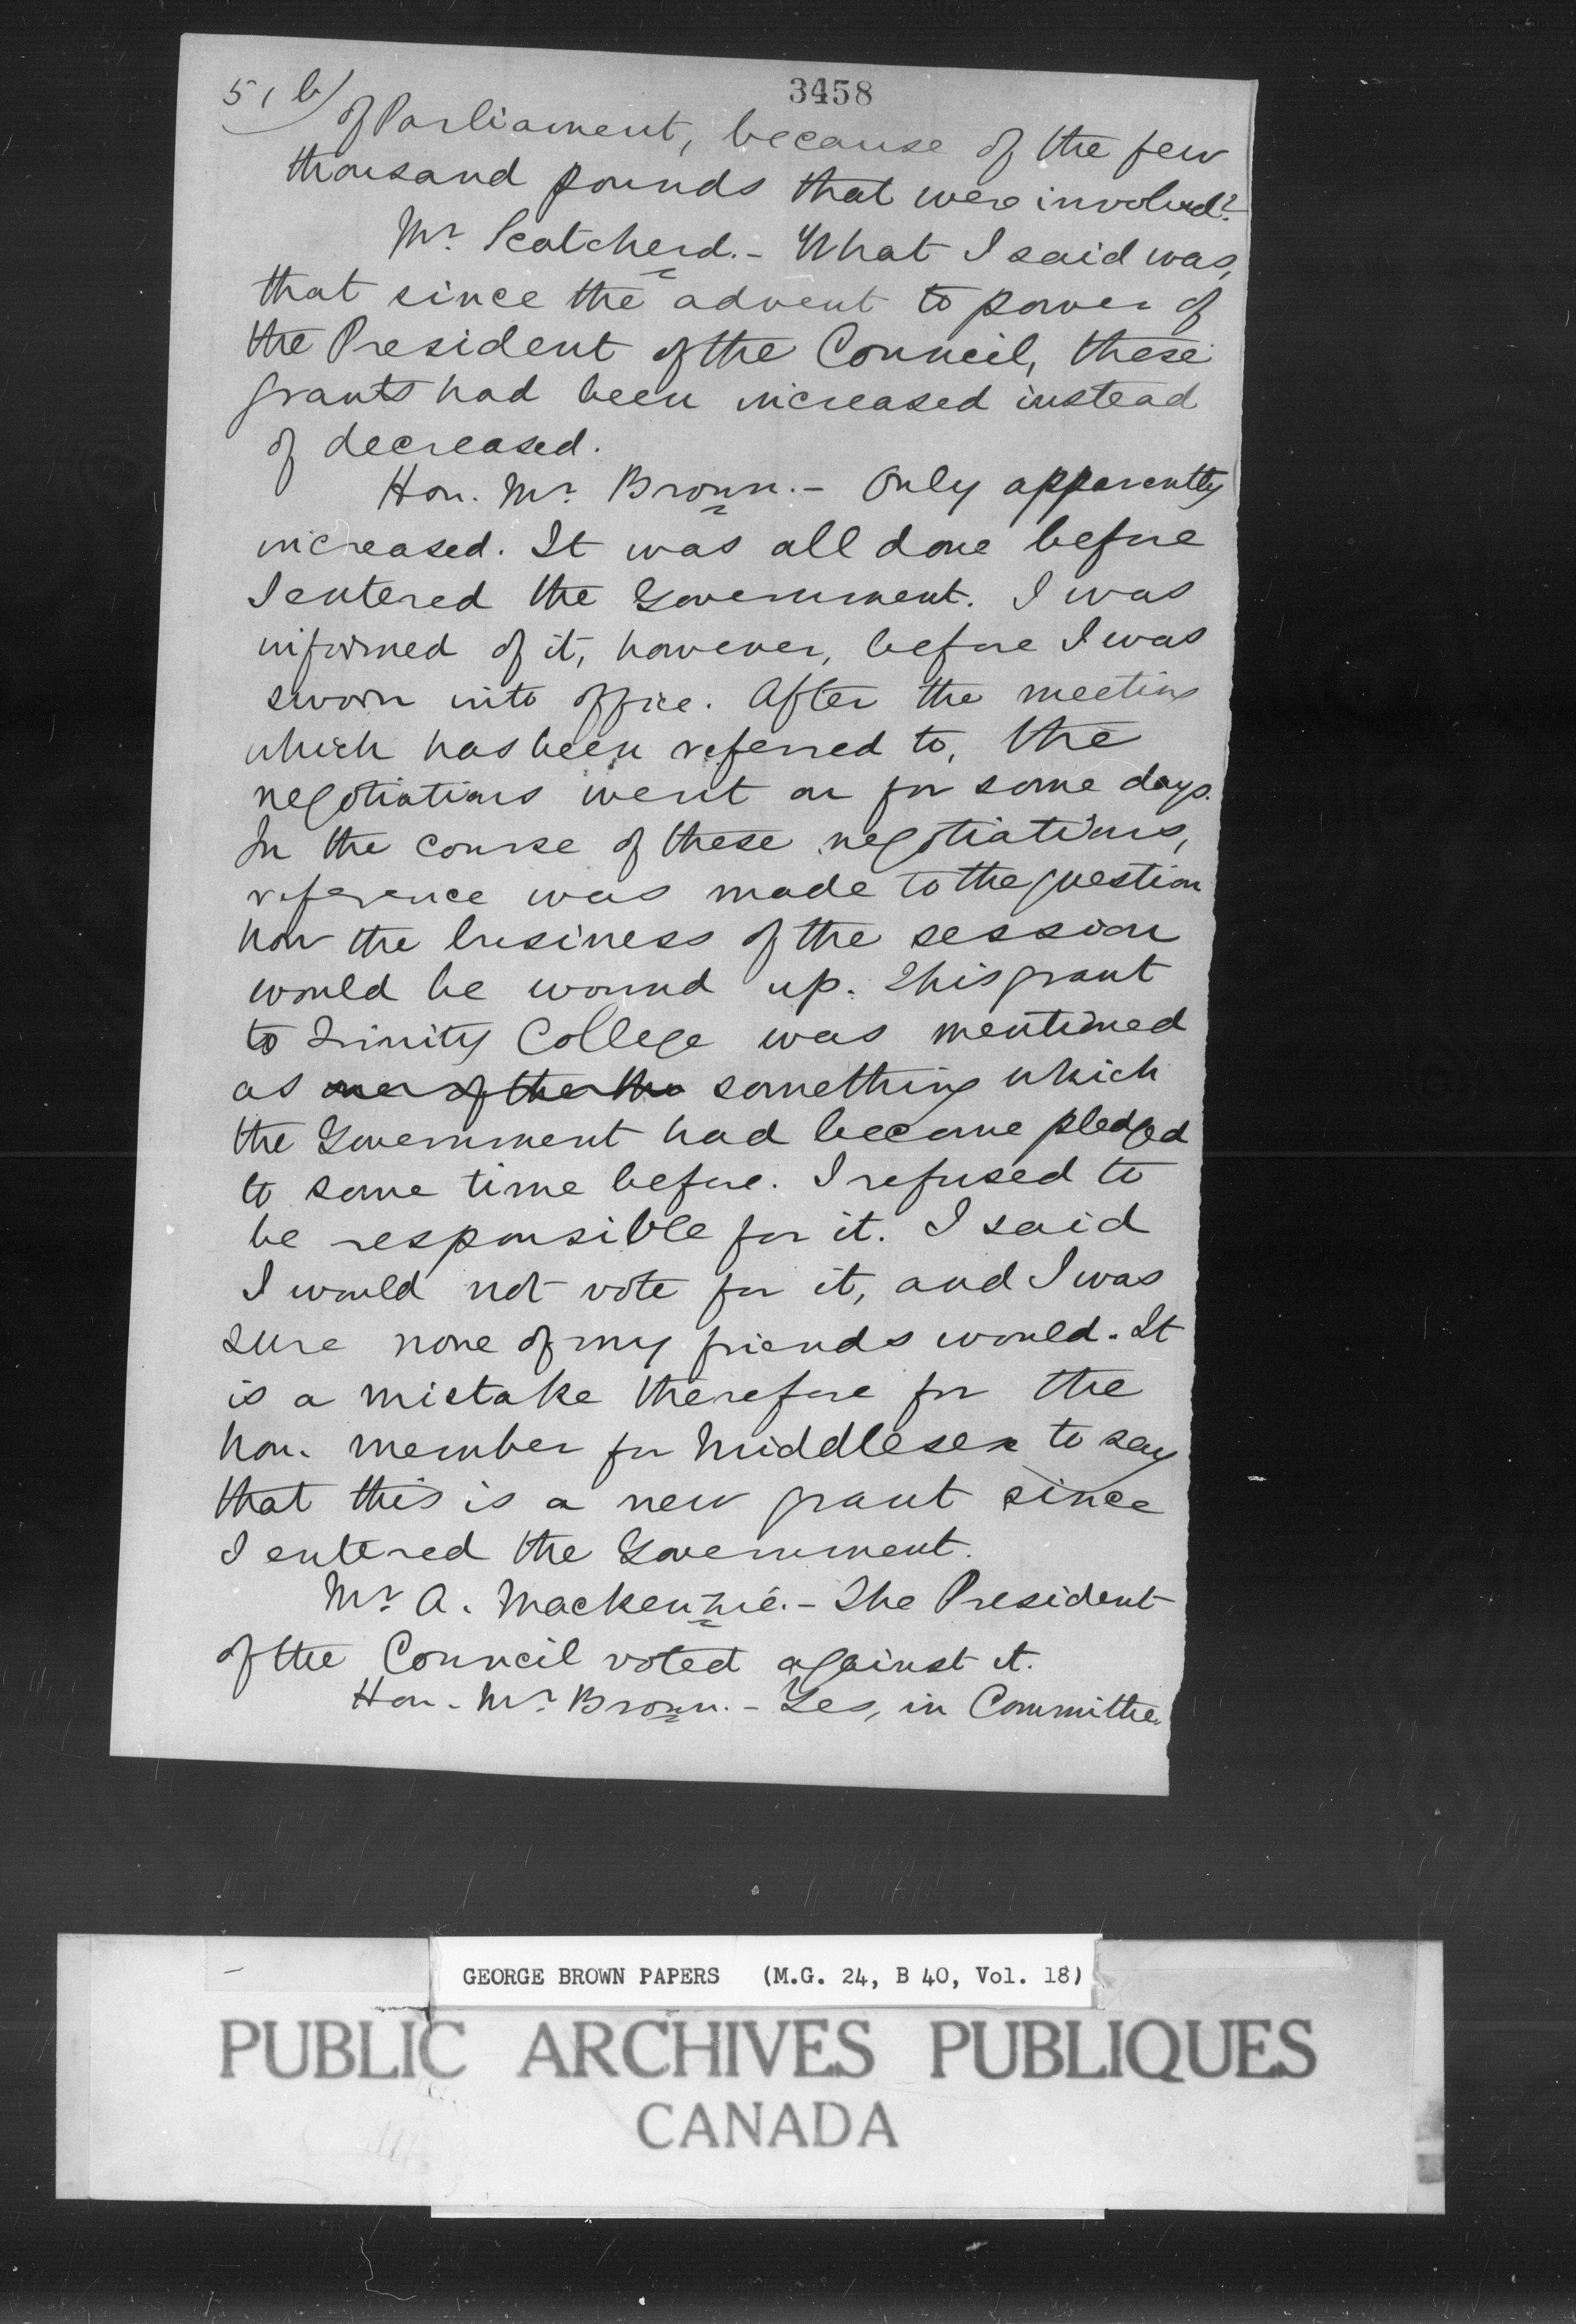 3458
5, b)
of Parliament, because of the few
thousand pounds that were involved?
Mr. Scatcherd. - What I said was,
that since the advent to power of
the President of the Council, these
grants had been increased instead
of decreased.
Hon. Mr. Brown. - Only apparently
increased. It was all done before
I entered the Government. I was
informed of it, however, before I was
sworn into office. After the meeting
which has been referred to, the
negotiations went on for some days.
In the course of these negotiations,
reference was made to the question
how the business of the session
would be wound up. This grant
to Trinity College was mentioned
as one of the the something which
the Government had become pledged
to some time before. I refused to
be responsible for it. I said
I would not vote for it, and I was
sure none of my friends would. It
is a mistake therefore for the
hon. member for Middlesex to say
that this is a new grant since
I entered the Government.
Mr. A. Mackenzie. - The President
of the Council voted against it.
Hon. Mr. Brown. - Yes, in Committee.
GEORGE BROWN PAPERS (M.G. 24, B 40, Vol. 18)
PUBLIC ARCHIVES PUBLIQUES
CANADA